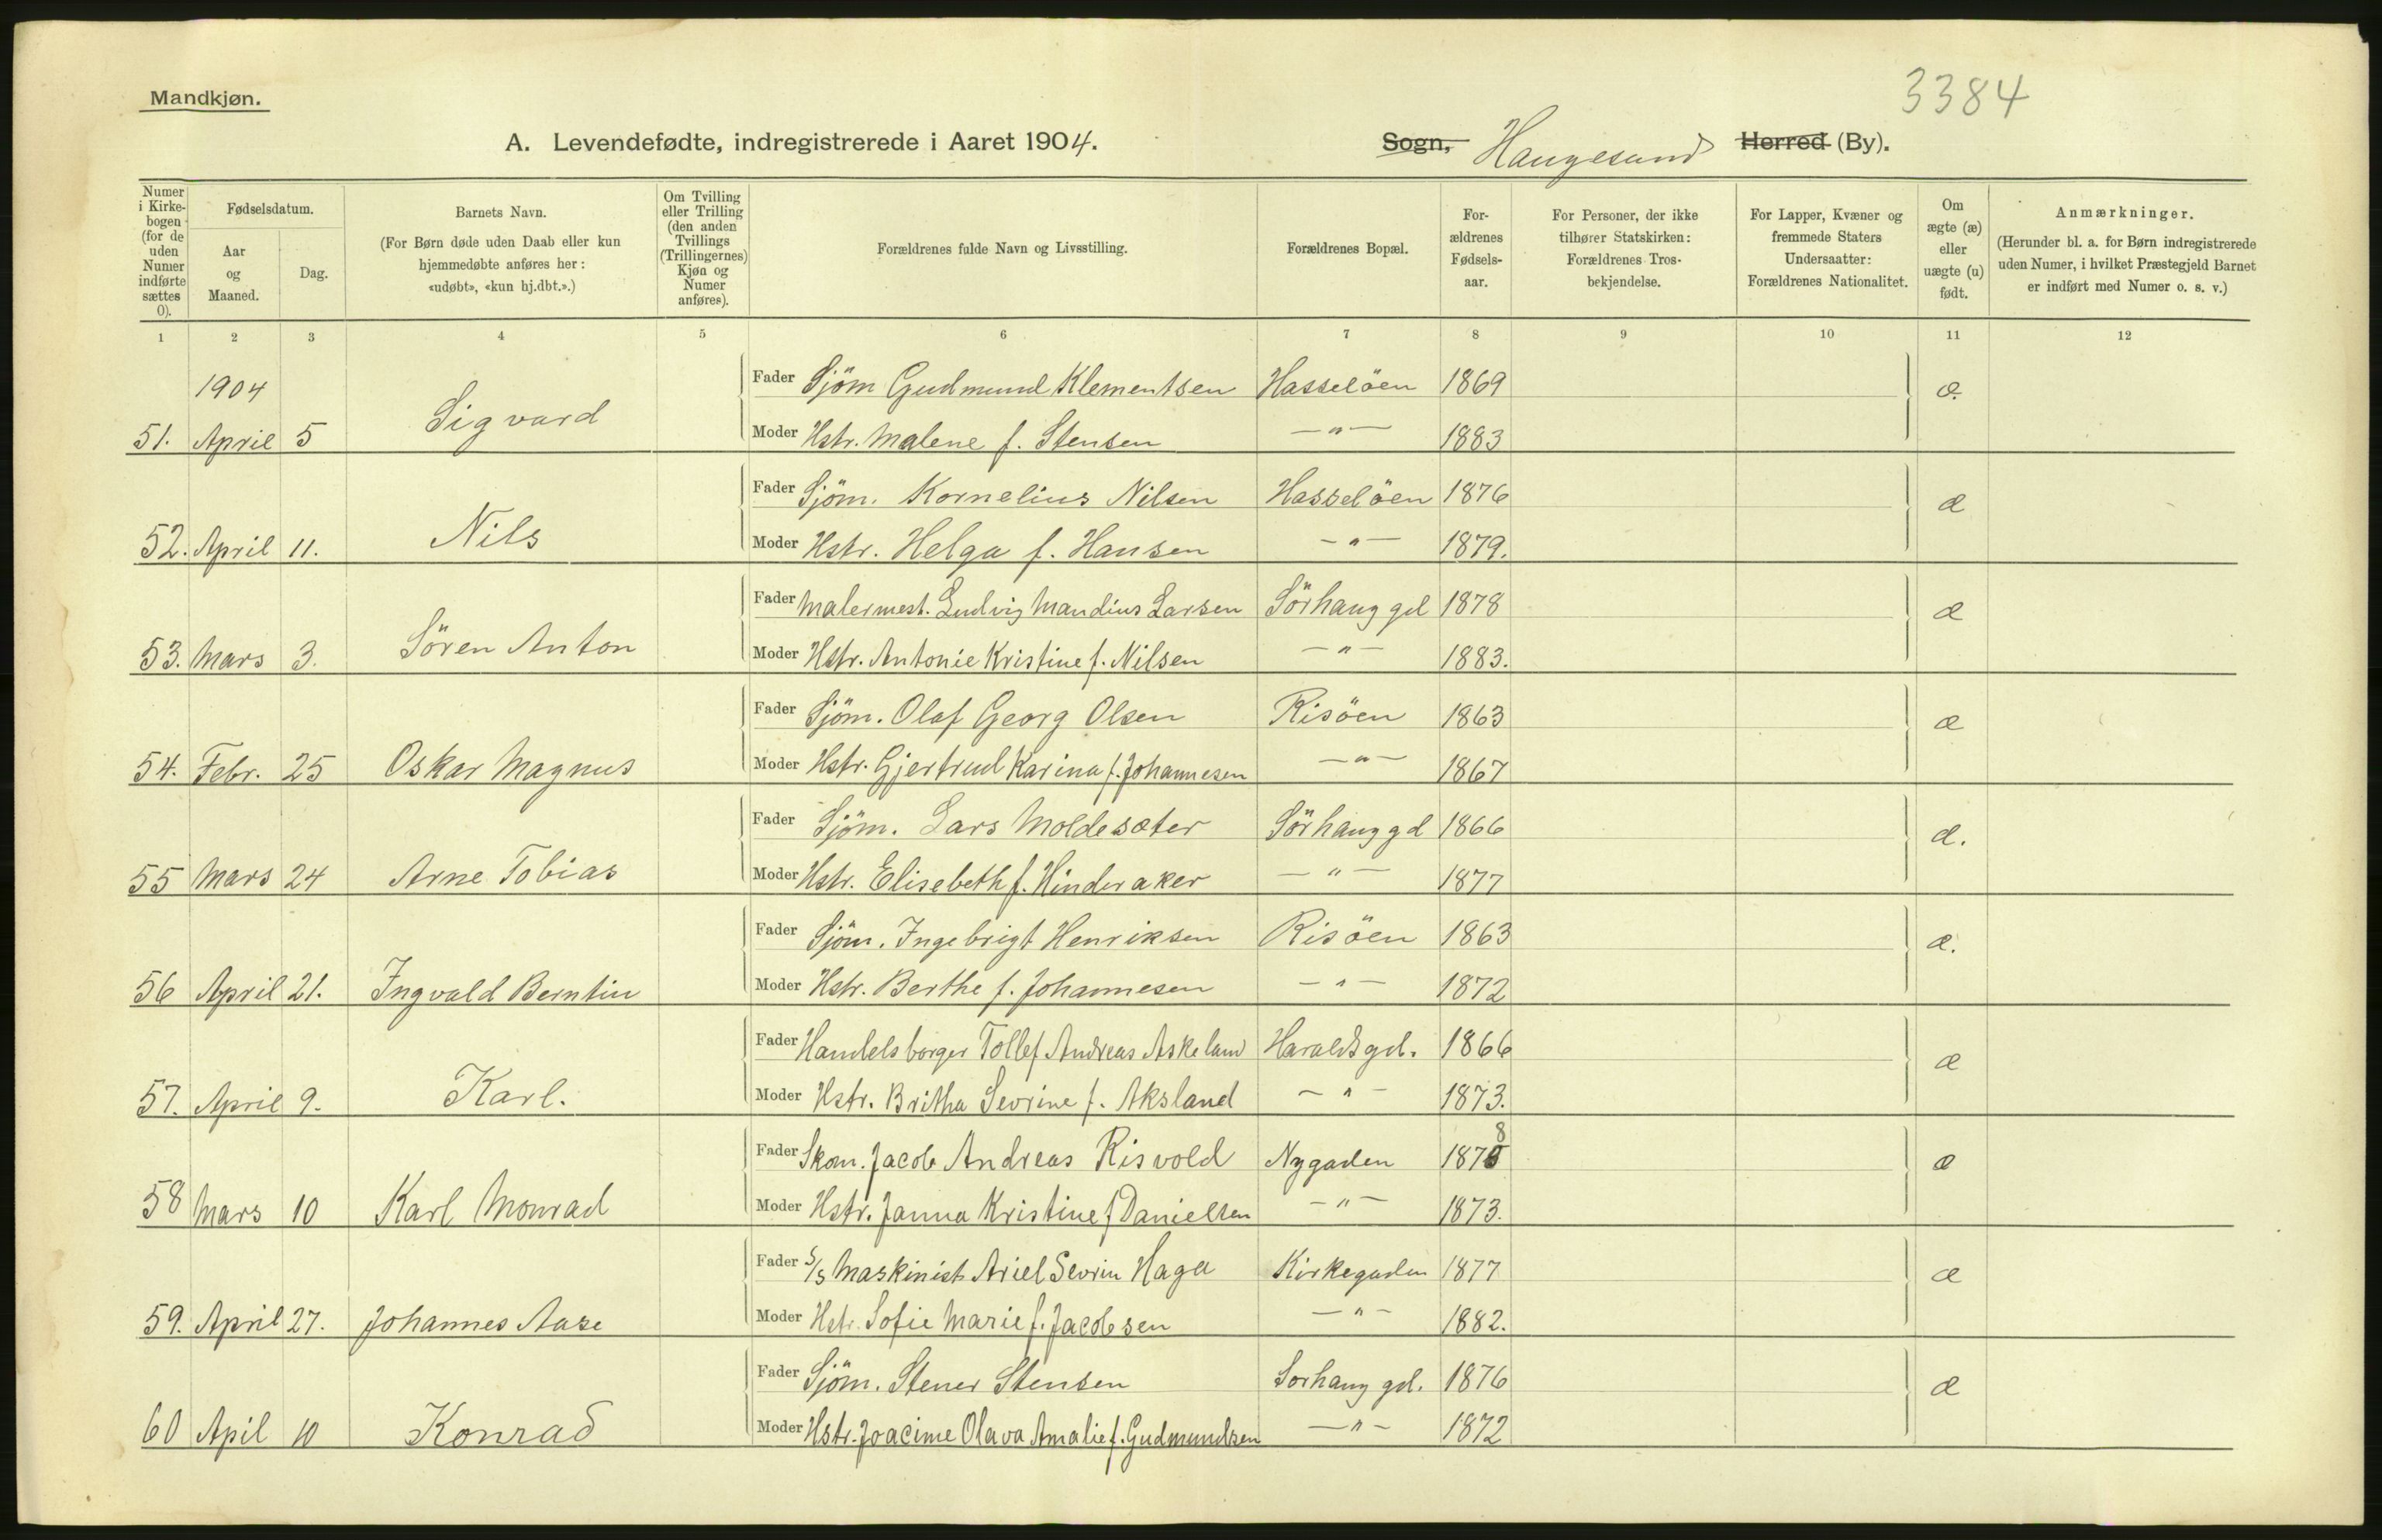 3384
Mandkjøn.
A. Levendefødte, indregistrerede i Aaret 1904. Sogn, Haugesund Herred (By).
Numer i Kirke-bogen (for de uden Numer indførte sættes 0).
Fødselsdatum.
Aar og Maaned.
Dag.
Barnets Navn.
(For Børn døde uden Daab eller kun hjemmedøbte anføres her: «udøbt», «kun hj.dbt.».)
Om Tvilling eller Trilling (den anden Tvillings (Trillingernes) Kjøn og Numer anføres).
Forældrenes fulde Navn og Livsstilling.
Forældrenes Bopæl.
For-ældrenes Fødsels-aar.
For Personer, der ikke tilhører Statskirken: Forældrenes Tros-bekjendelse.
For Lapper, Kvæner og fremmede Staters Undersaatter: Forældrenes Nationalitet.
Om ægte (æ) eller uægte (u) født.
Anmærkninger.
(Herunder bl. a. for Børn indregistrerede uden Numer, i hvilket Præstegjeld Barnet er indført med Numer o. s. v.)
1 2 3 4 5 6 7 8 9 10 11 12
1904 Fader Sjöm Gudmund Klementsen Hasselöen 1869 æ
51. April 5 Sigvard Moder Hstr. Malene f. Stensen —"— 1883
Fader Sjöm. Kornelius Nilsen Hasselöen 1876 æ
52. April 11. Nils Moder Hstr. Helga f. Hansen —"— 1879.
Fader Malermest. Ludvig Mandius Larsen Sörhaug gd 1878 æ
53. Mars 3. Sören Anton Moder Hstr. Antonie Kristine f. Nilsen —"— 1883.
Fader Sjöm. Olaf Georg Olsen Risöen 1863 æ
54. Febr. 25 Oskar Magnus Moder Hstr. Gjertrud Karina f. Johannesen —"— 1867
Fader Sjöm. Lars Moldesæter Sörhaug gd 1866 æ.
55 Mars 24 Arne Tobias Moder Hstr. Elisebeth f. Hinderaker —"— 1877
Fader Sjöm. Ingebrigt Henriksen Risöen 1863 æ.
56 April 21. Ingvald Berntin Moder Hstr. Berthe f. Johannesen —"— 1872
Fader Handelsborger Tollef Andreas Askeland Haraldsgd. 1866 æ
57. April 9. Karl. Moder Hstr. Britha Sevrine f. Aksland —"— 1873.
Fader Skom. Jacob Andreas Risvold Nygaden 1878 æ
58 Mars 10 Karl Monrad Moder Hstr. Janna Kristine f Danielsen —"— 1873.
Fader S/S Maskinist Ariel Sevrin Haga Kirkegaden 1877 æ
59. April 27. Johannes Aase Moder Hstr. Sofie Marie f. Jacobsen —"— 1882.
Fader Sjöm. Stener Stensen Sorhaug gd. 1876 æ
60 Apil 10 Konrad Moder Hstr. Joacime Olava Amalie f. Gudmundsen —"— 1872